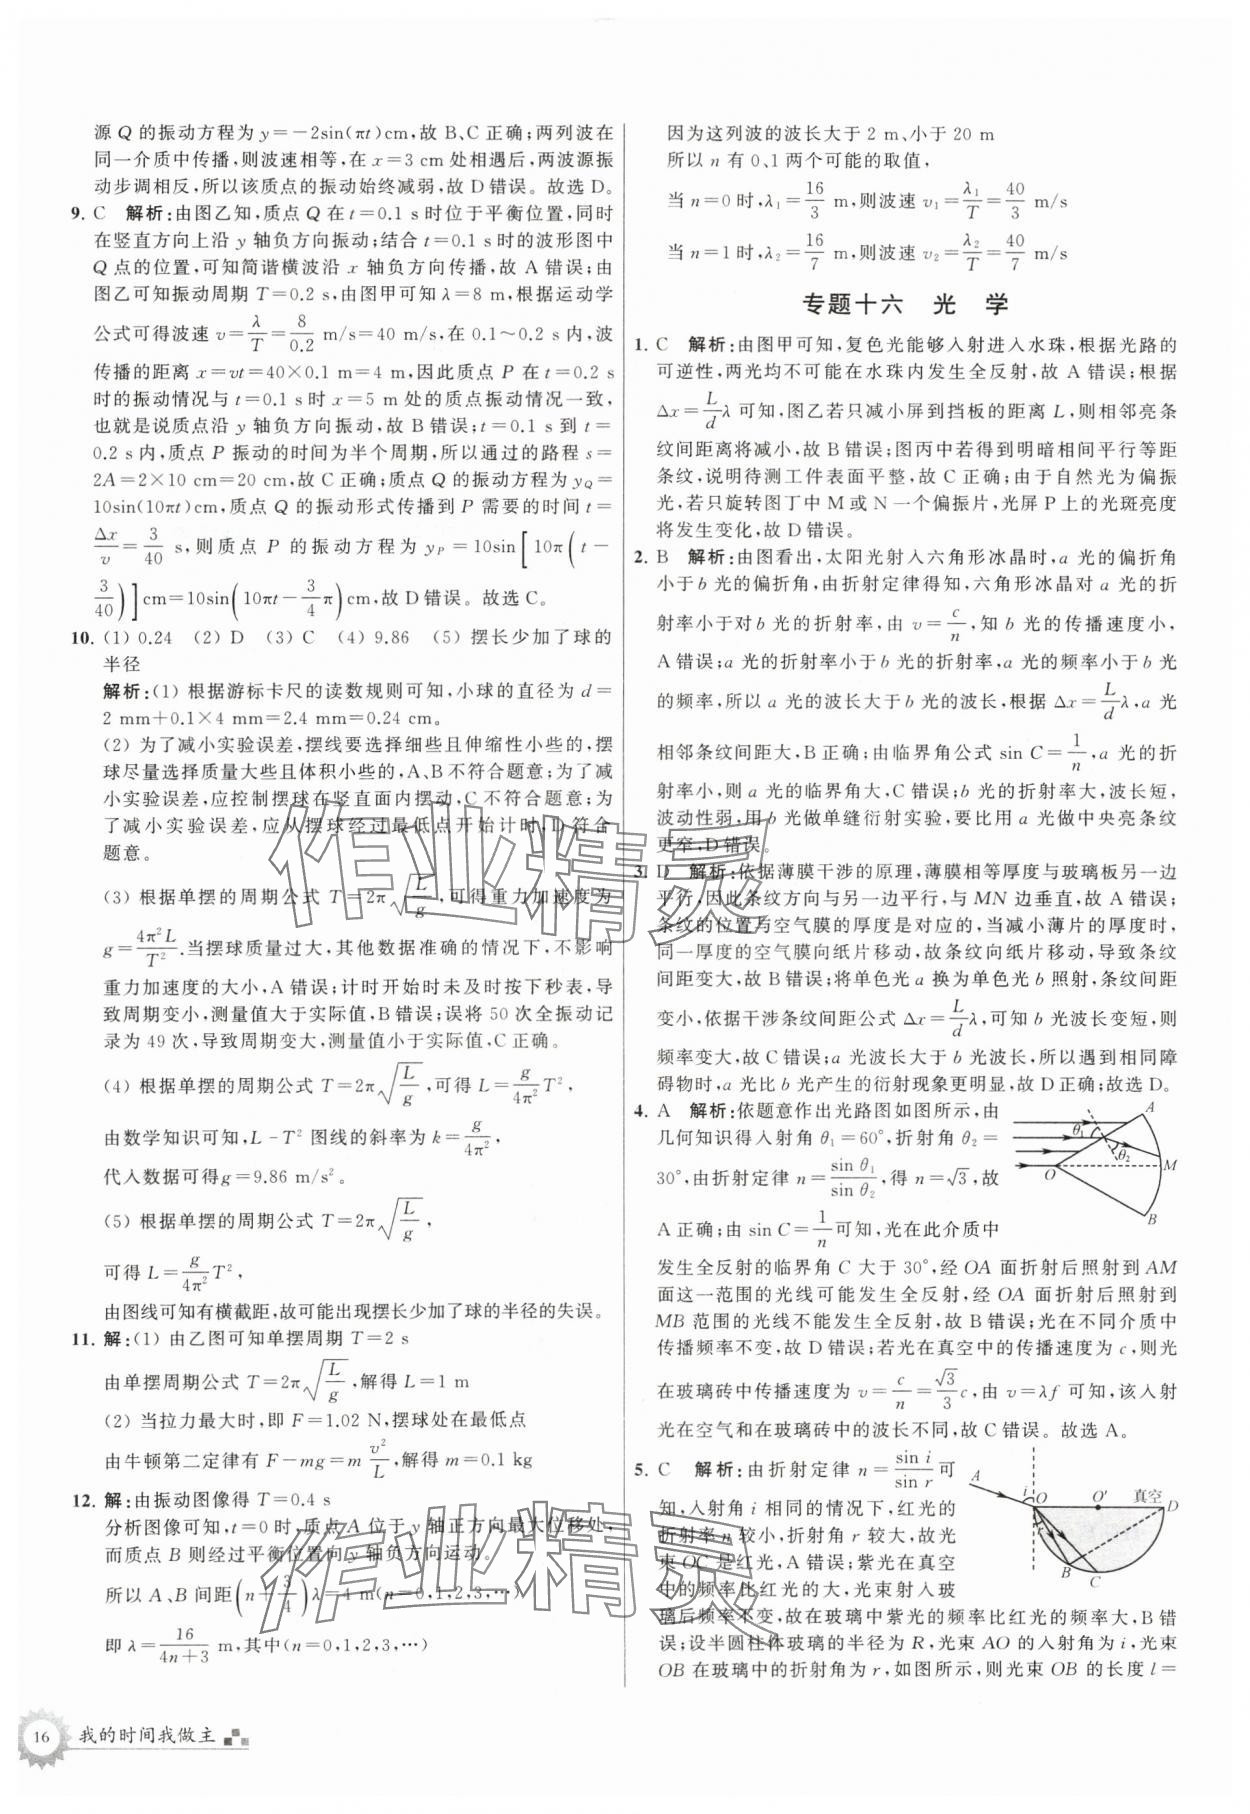 源 Q 的振动方程为 y=−2sin(πt)cm,故 B、C 正确;两列波在
同一介质中传播,则波速相等,在 x=3 cm 处相遇后,两波源振
动步调相反,所以该质点的振动始终减弱,故 D 错误。故选 D。
9. C 解析:由图乙知,质点 Q 在 t=0.1 s 时位于平衡位置,同时
在竖直方向上沿 y 轴负方向振动;结合 t=0.1 s 时的波形图中
Q 点的位置,可知简谐横波沿 x 轴负方向传播,故 A 错误;由
图乙可知振动周期 T=0.2 s,由图甲可知 λ=8 m,根据运动学
公式可得波速 v=λ/T=8/0.2 m/s=40 m/s,在 0.1～0.2 s 内,波
传播的距离 x=vt=40×0.1 m=4 m,因此质点 P 在 t=0.2 s
时的振动情况与 t=0.1 s时 x=5 m 处的质点振动情况一致,
也就是说质点沿 y 轴负方向振动,故 B 错误;t=0.1 s 到 t=
0.2 s 内,质点 P 振动的时间为半个周期,所以通过的路程 s=
2A=2×10 cm=20 cm,故 C 正确;质点 Q 的振动方程为 y_Q=
10sin(10πt)cm,质点 Q 的振动形式传播到 P 需要的时间 t=
Δx/v=3/40 s,则质点 P 的振动方程为 y_P=10sin[10π(t−
3/40)]cm=10sin(10πt−3/4π)cm,故 D 错误。故选 C。
10. (1) 0.24 (2) D (3) C (4) 9.86 (5) 摆长少加了球的
半径
解析:(1) 根据游标卡尺的读数规则可知,小球的直径为 d=
2 mm+0.1×4 mm=2.4 mm=0.24 cm。
(2) 为了减小实验误差,摆线要选择细些且伸缩性小些的,摆
球尽量选择质量大些且体积小些的,A、B 不符合题意;为了减
小实验误差,应控制摆球在竖直面内摆动,C 不符合题意;为
了减小实验误差,应从摆球经过最低点开始计时,D 符合
题意。
(3) 根据单摆的周期公式 T=2π√(L/g),可得重力加速度为
g=4π²L/T².当摆球质量过大,其他数据准确的情况下,不影响
重力加速度的大小,A 错误;计时开始时未及时按下秒表,导
致周期变小,测量值大于实际值,B 错误;误将 50 次全振动记
录为 49 次,导致周期变大,测量值小于实际值,C 正确。
(4) 根据单摆的周期公式 T=2π√(L/g),可得 L=g/4π² T²,
由数学知识可知,L-T² 图线的斜率为 k=g/4π²,
代入数据可得g=9.86 m/s²。
(5) 根据单摆的周期公式 T=2π√(L/g),
可得 L=g/4π² T²,
由图线可知有横截距,故可能出现摆长少加了球的半径的失误。
11. 解:(1) 由乙图可知单摆周期 T=2 s
由单摆周期公式 T=2π√(L/g),解得 L=1 m
(2) 当拉力最大时,即 F=1.02 N,摆球处在最低点
由牛顿第二定律有 F−mg=m v²/L,解得 m=0.1 kg
12. 解:由振动图像得 T=0.4 s
分析图像可知,t=0 时,质点 A 位于 y 轴正方向最大位移处,
而质点 B 则经过平衡位置向 y 轴负方向运动。
所以 A、B 间距(n+3/4)λ=4 m(n=0,1,2,3,…)
即 λ=16/(4n+3) m,其中(n=0,1,2,3,…)
16 我的时间我做主
因为这列波的波长大于 2 m、小于 20 m
所以 n 有 0、1 两个可能的取值,
当 n=0 时,λ₁=16/3 m,则波速 v₁=λ₁/T=40/3 m/s
当 n=1 时,λ₂=16/7 m,则波速 v₂=λ₂/T=40/7 m/s
专题十六 光 学
1. C 解析:由图甲可知,复色光能够入射进入水珠,根据光路的
可逆性,两光均不可能在水珠内发生全反射,故 A 错误;根据
Δx=L/d λ 可知,图乙若只减小屏到挡板的距离 L,则相邻亮条
纹间距离将减小,故 B 错误;图丙中若得到明暗相间平行等距
条纹,说明待测工件表面平整,故 C 正确;由于自然光为偏振
光,若只旋转图丁中 M 或 N 一个偏振片,光屏 P 上的光斑亮度
将发生变化,故 D 错误。
2. B 解析:由图看出,太阳光射入六角形冰晶时,a 光的偏折角
小于 b 光的偏折角,由折射定律得知,六角形冰晶对 a 光的折
射率小于对 b 光的折射率,由 v=c/n,知 b 光的传播速度小,
A 错误;a 光的折射率小于 b 光的折射率,a 光的频率小于 b 光
的频率,所以 a 光的波长大于 b 光的波长,根据 Δx=L/d λ,a 光
相邻条纹间距大,B 正确;由临界角公式 sin C=1/n,a 光的折
射率小,则 a 光的临界角大,C 错误;b 光的折射率大,波长短,
波动性弱,用 b 光做单缝衍射实验,要比用 a 光做中央亮条纹
更窄,D 错误。
3. D 解析:依据薄膜干涉的原理,薄膜相等厚度与玻璃板另一边
平行,因此条纹方向与另一边平行,与 MN 边垂直,故 A 错误;
条纹的位置与空气膜的厚度是对应的,当减小薄片的厚度时,
同一厚度的空气膜向纸片移动,故条纹向纸片移动,导致条纹
间距变大,故 B 错误;将单色光 a 换为单色光 b 照射,条纹间距
变小,依据干涉条纹间距公式 Δx=L/d λ,可知 b 光波长变短,则
频率变大,故 C 错误;a 光波长大于 b 光波长,所以遇到相同障
碍物时,a 光比 b 光产生的衍射现象更明显,故 D 正确;故选 D。
4. A 解析:依题意作出光路图如图所示,由
几何知识得入射角 θ₁=60°,折射角 θ₂=
30°,由折射定律 n=sin θ₁/sin θ₂,得 n=√3,故
A 正确;由 sin C=1/n 可知,光在此介质中
A
θ₁
θ₂
O
M
B
发生全反射的临界角 C 大于 30°,经 OA 面折射后照射到 AM
面这一范围的光线可能发生全反射,经 OA 面折射后照射到
MB 范围的光线不能发生全反射,故 B 错误;光在不同介质中
传播频率不变,故 D 错误;若光在真空中的传播速度为 c,则光
在玻璃砖中传播速度为 v=c/n=√3/3 c,由 v=λf 可知,该入射
光在空气和在玻璃砖中的波长不同,故 C 错误。故选 A。
5. C 解析:由折射定律 n=sin i/sin r 可
知,入射角 i 相同的情况下,红光的
折射率 n 较小,折射角 r 较大,故光
束 OC 是红光,A 错误;紫光在真空
中的频率比红光的大,光束射入玻
A
i
O
O′
真空
D
r
B
C
璃后频率不变,故在玻璃中紫光的频率比红光的大,B 错
误;设半圆柱体玻璃的半径为 R,光束 AO 的入射角为 i,光束
OB 在玻璃中的折射角为 r,如图所示,则光束 OB 的长度 l=
作业精灵
作业精灵